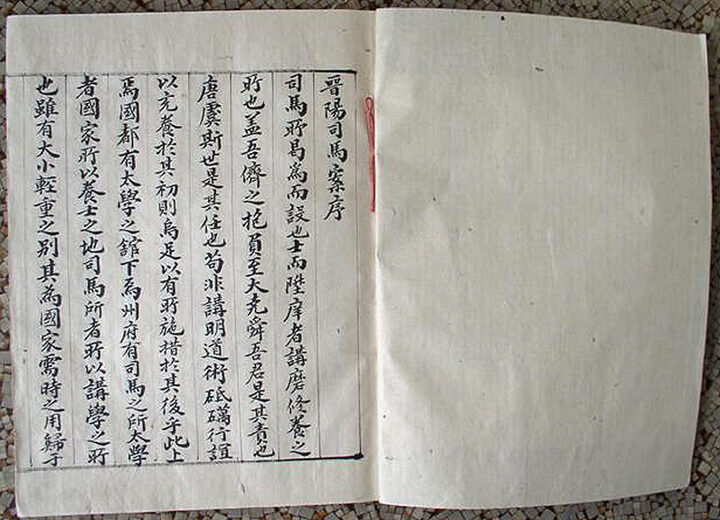 晋陽司馬案序
司馬所曷為而設也士而陞庠者講磨修養之
所也盖吾儕之抱負至大堯舜吾君是其責也
唐虞斯世是其任也苟非講明道術砥礪行誼
以充養於其初則烏足以有所施措於其後乎此上
焉國都有太學之舘下焉州府有司馬之所太學
者國家所以養士之地司馬所者所以講學之所
也雖有大小輕重之别其為國家需時之用歸于